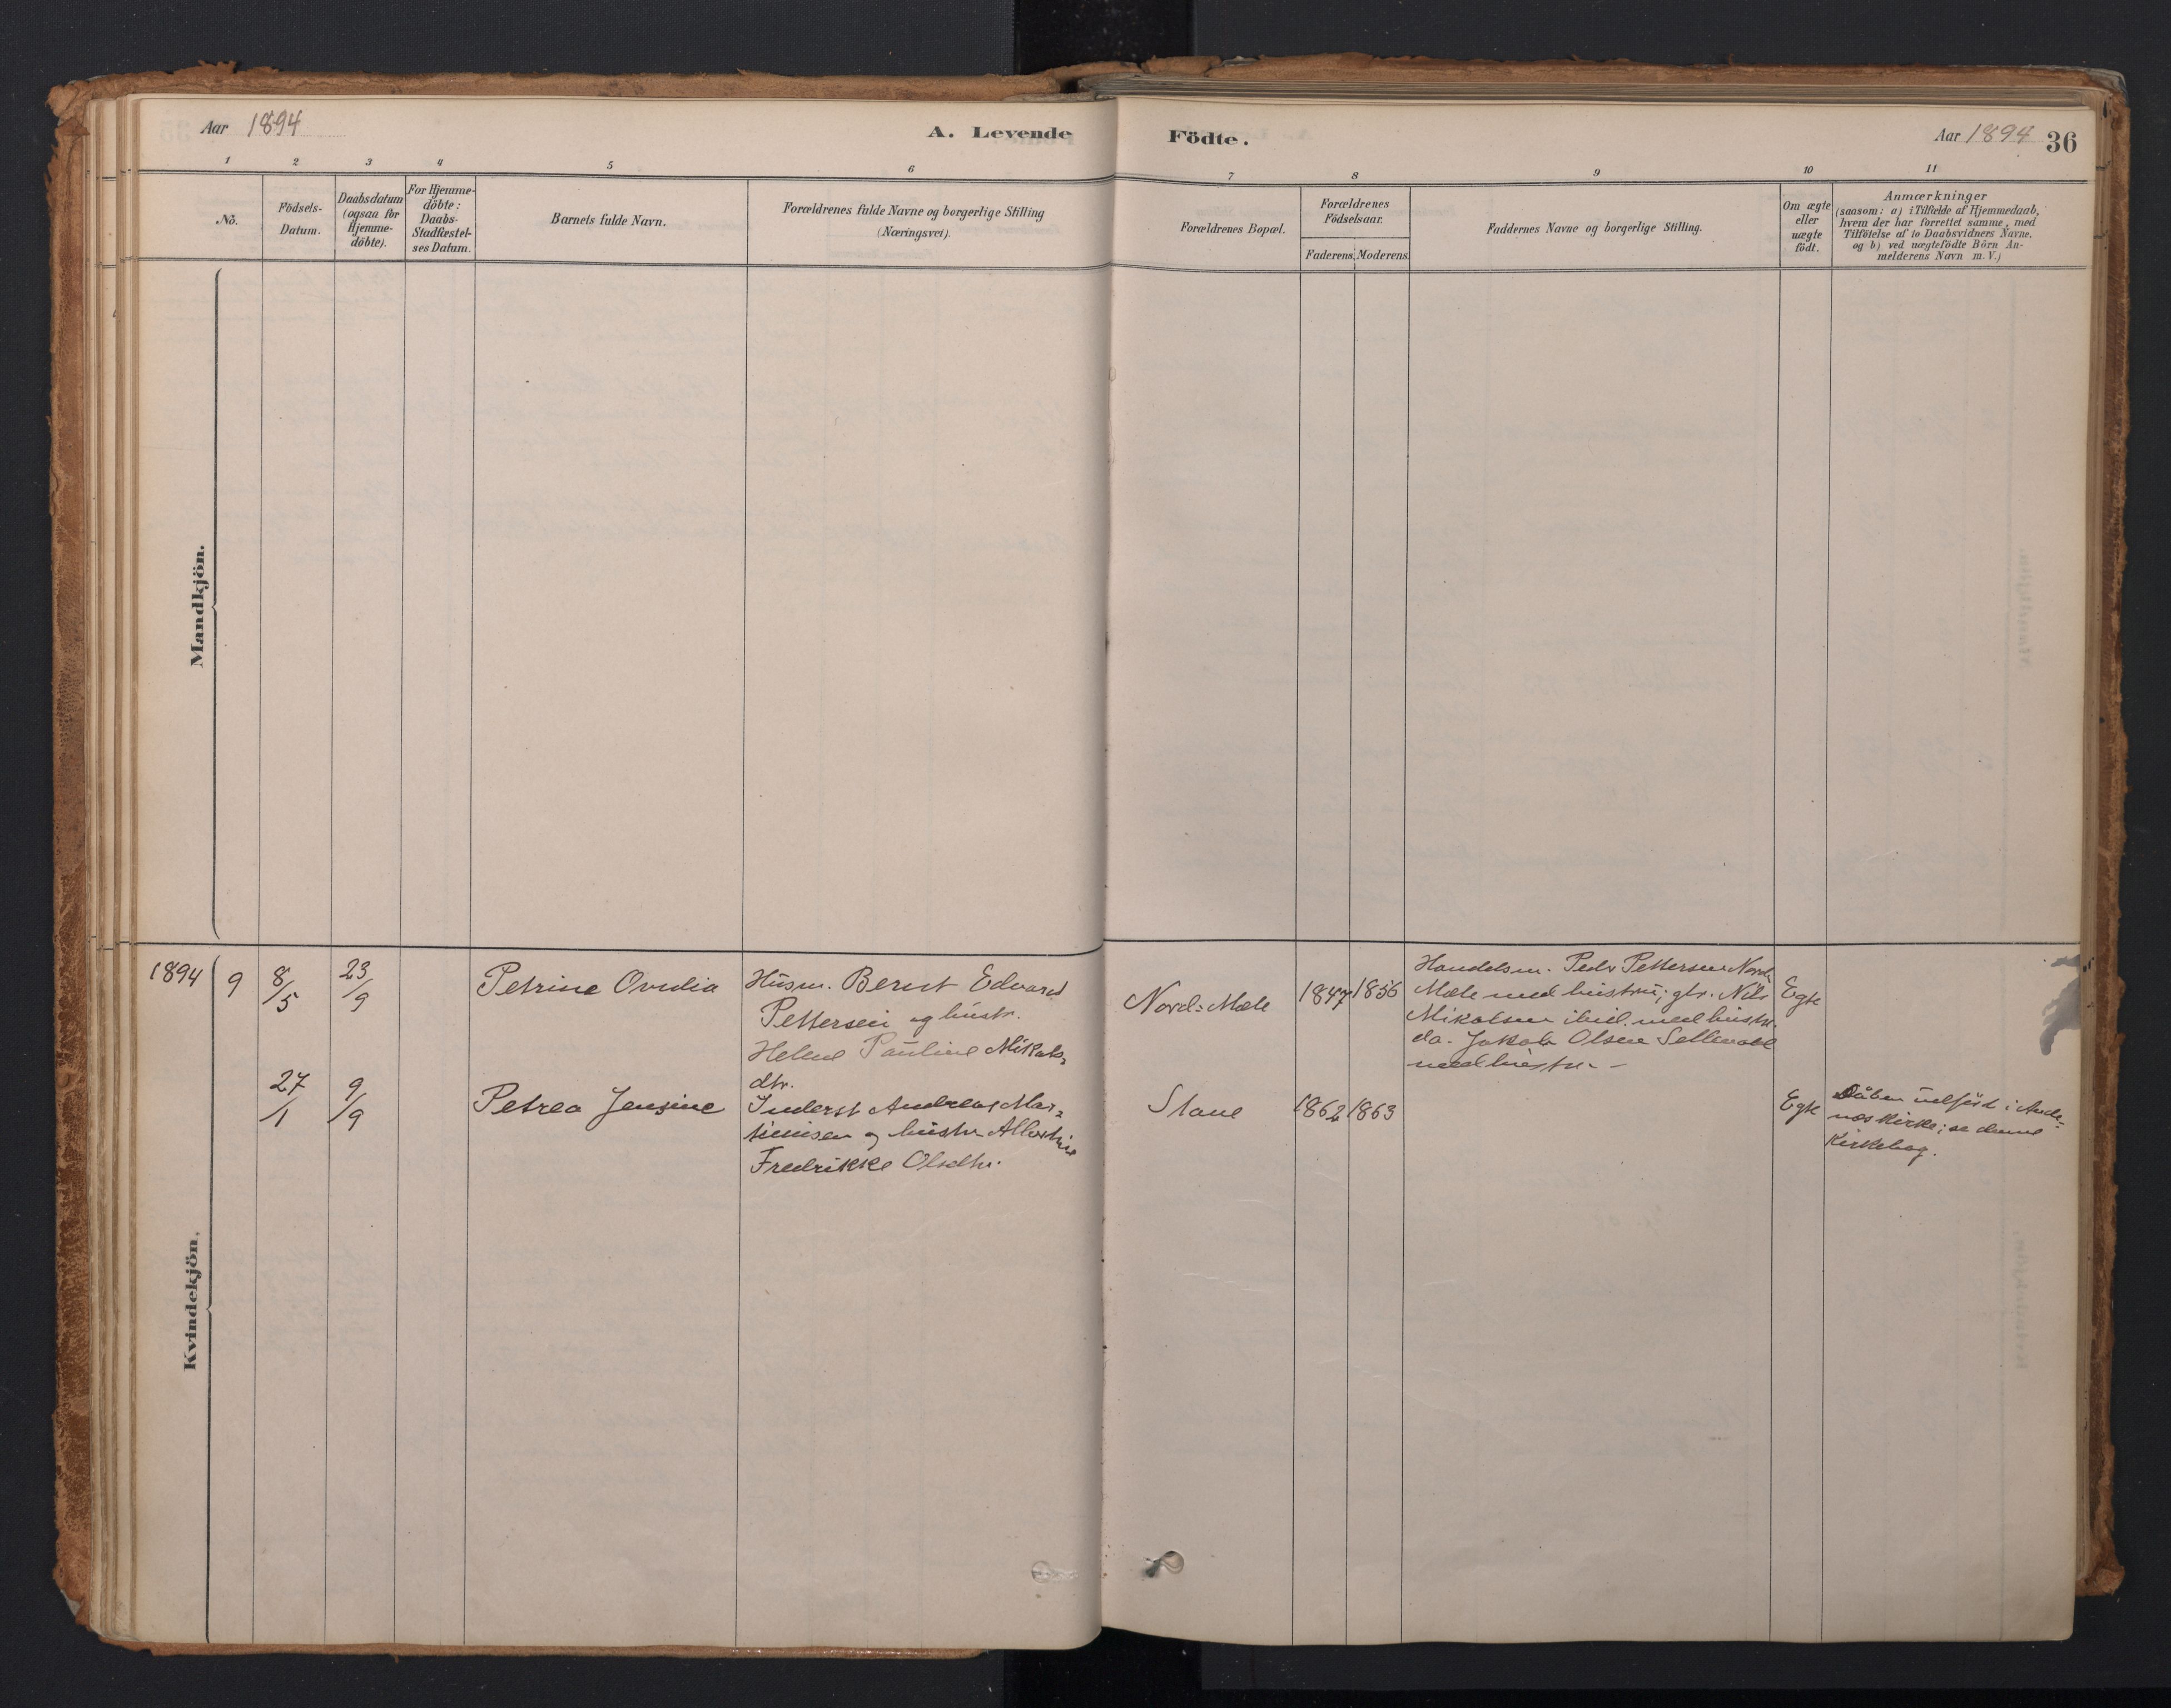 Aar 1894
A. Levende
Födte.
Aar 1894
36
1
2
3
4
5
6
7
8
9
10
11
No.
Födsels-
Datum.
Daabsdatum
(ogsaa for
Hjemme-
döbte).
For Hjemme-
döbte:
Daabs-
Stadfæstel-
ses Datum.
Barnets fulde Navn.
Forældrenes fulde Navne og borgerlige Stilling
(Næringsvei).
Forældrenes Bopæl.
Forældrenes
Födselsaar.
Faderens.
Moderens.
Faddernes Navne og borgerlige Stilling.
Om ægte
eller
uægte
födt.
Anmærkninger
(saasom: a) i Tilfælde af Hjemmedaab,
hvem der har forrettet samme, med
Tilföielse af to Daabsvidners Navne,
og b) ved uægtefödte Börn An-
melderens Navn m. V.)
Mandkjön.
Kvindekjön.
1894
9
8/5
23/9
Petrine Ovedia
Husm. Bernt Edvard
Pettersen og hustr.
Helene Pauline Mikals=
dtr.
Nord-Mæle
1847
1856
Handelsm. Peder Pettersen Nord-
Mæle med hustru; gbr. Nils
Mikalsen ibid. med hustr.
do. Jakob Olsen
med hustr. –
Egte
27/1
9/9
Petrea Jensine
Inderst Andreas Mar=
tinusen og hustr. Albertine
Fredrikke Olsdtr.
Stave
1862
1863
Egte
Dåben udförd i Ande-
næs Kirke; se denne
Kirkebog.